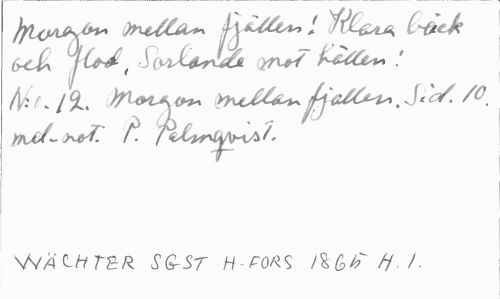 Morgon mellan fjällen! Klara bäck
och flod, Sorlande mot hällen!
N:o. 12. Morgon mellan fjällen. Sid. 10.
mel-not. P. Palmqvist.
WÄCHTER SGST H-FORS 1865 H. 1.